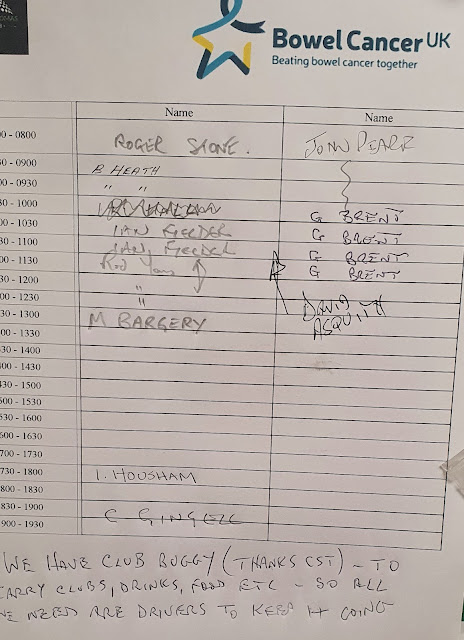 OMAS
Bowel Cancer UK
Beating bowel cancer together
Name Name
00 - 0800 ROGER STONE. JOHN PEARR
30 - 0900 B HEATH
00 - 0930 " "
30 - 1000 G BRENT
00 - 1030 IAN FEEDER G BRENT
30 - 1100 IAN FEEDER G BRENT
00 - 1130 Rod G BRENT
30 - 1200 "
00 - 1230 " DAVID
30 - 1300 M BARGERY ASQUITH
00 - 1330
30 - 1400
00 - 1430
430 - 1500
500 - 1530
530 - 1600
600 - 1630
700 - 1730
730 - 1800 I. HOUSHAM
800 - 1830
830 - 1900
900 - 1930 C GINGELL
WE HAVE CLUB BUGGY (THANKS CST) - TO
CARRY CLUBS, DRINKS, FOOD ETC - SO ALL
WE NEED ARE DRIVERS TO KEEP IT GOING